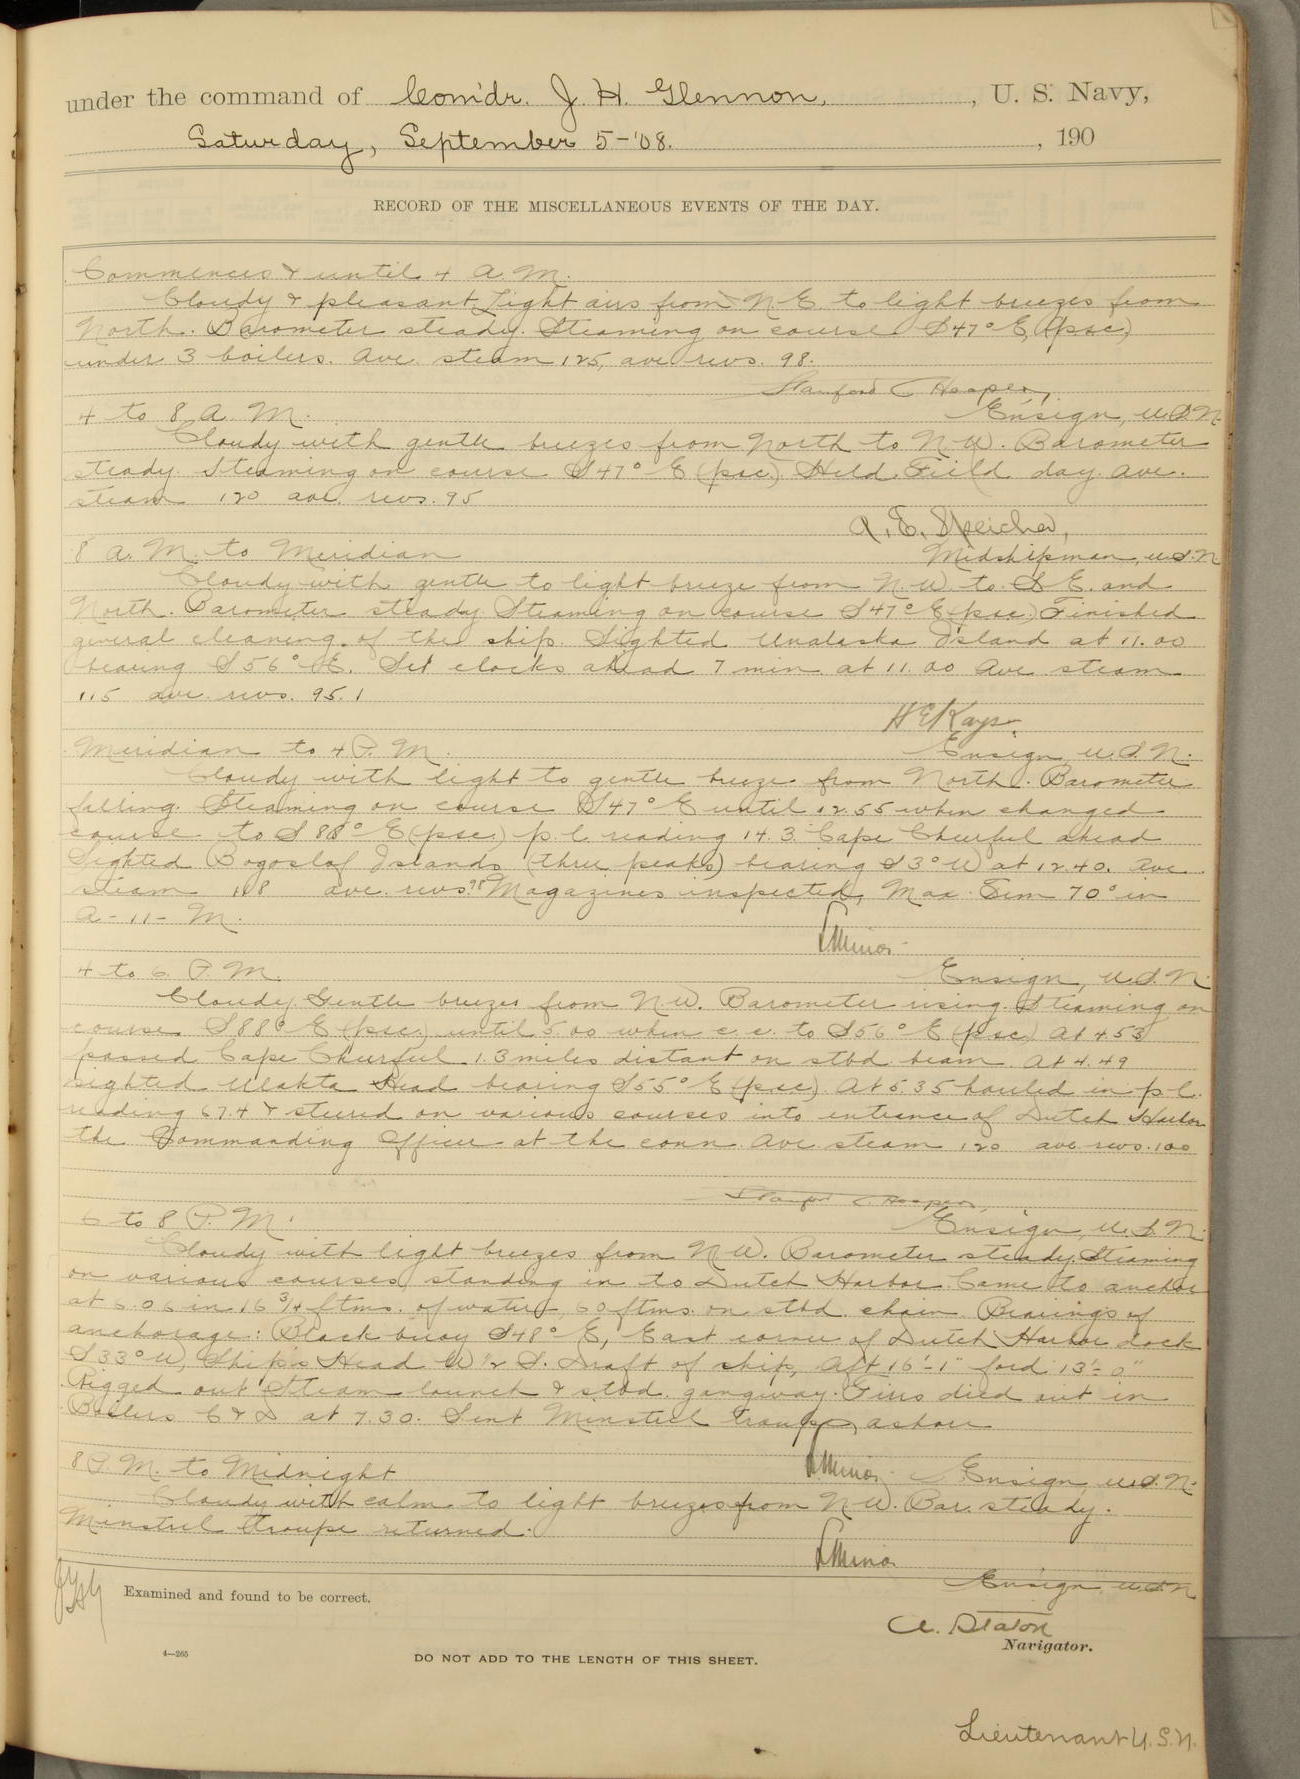 under the command of Com'dr. J. H. Glennon, , U. S. Navy,
Saturday, September 5-'08. , 190
RECORD OF THE MISCELLANEOUS EVENTS OF THE DAY.
Commences & until 4 A.M.
Cloudy & pleasant. Light airs from N.E. to light breezes from
North. Barometer steady. Steaming on course S47°E (psc)
under 3 boilers. Ave. steam 125, ave revs. 98.
Stanford C Hooper,
4 to 8 A.M. Ensign, U.S.N.
Cloudy with gentle breezes from North to N.W. Barometer
steady. Steaming on course S47°E (psc.) Held Field day. Ave.
steam 120 ave. revs. 95
A. E. Speicher,
8 A.M. to Meridian Midshipman, U.S.N
Cloudy with gentle to light breeze from N.W. to S.E. and
North. Barometer steady. Steaming on course S47°E (psc.) Finished
general cleaning of the ship. Sighted Unalaska Island at 11.00
bearing S56°E. Set clocks ahead 7 min. at 11.00 Ave steam
115 ave. revs. 95.1
H E Kays.
Meridian to 4 P.M. Ensign U.S.N.
Cloudy with light to gentle breeze from North. Barometer
falling. Steaming on course S47°E until 12.55 when changed
course to S88°E (psc.) p.l. reading 14.3. Cape Cheerful ahead
Sighted Bogoslof Islands (three peaks) bearing S3°W at 12.40. Ave
steam 118 ave. revs. 98 Magazines inspected, Max. Tem 70° in
A-11-M.
L Minor
4 to 6 P.M. Ensign, U.S.N.
Cloudy. Gentle breezes from N.W. Barometer rising. Steaming on
course S88°E (psc.) until 5.00 when c.c. to S56°E (psc) At 4.53
passed Cape Cheerful 1.3 miles distant on stbd. beam. At 4.49
sighted Ulakta Head bearing S55°E (psc). At 5.35 hauled in p.l.
reading 67.4 & steered on various courses into entrance of Dutch Harbor
the Commanding Officer at the conn. Ave. steam 120 ave revs. 100
Stanford C. Hooper,
6 to 8 P.M. Ensign, U.S.N.
Cloudy with light breezes from N.W. Barometer steady. Steaming
on various courses, standing in to Dutch Harbor. Came to anchor
at 6.06 in 16 3/4 ftms. of water, 60 ftms. on stbd. chain. Bearings of
anchorage: Black buoy S48°E, East corner of Dutch Harbor dock
S33°W, Ship's Head W 1/2 S. Draft of ship, Aft 16'-1" ford 13'-0"
Rigged out steam launch & stbd. gangway. Fires died out in
Boilers C & D at 7.30. Sent Minstrel troupe, ashore
8 P.M. to Midnight L Minor Ensign, U.S.N.
Cloudy with calm to light breezes from N.W. Bar. steady.
Minstrel troupe returned.
L Minor
Ensign U.S.N
Examined and found to be correct.
A. Staton
Navigator.
4—265
DO NOT ADD TO THE LENGTH OF THIS SHEET.
Lieutenant U.S.N.